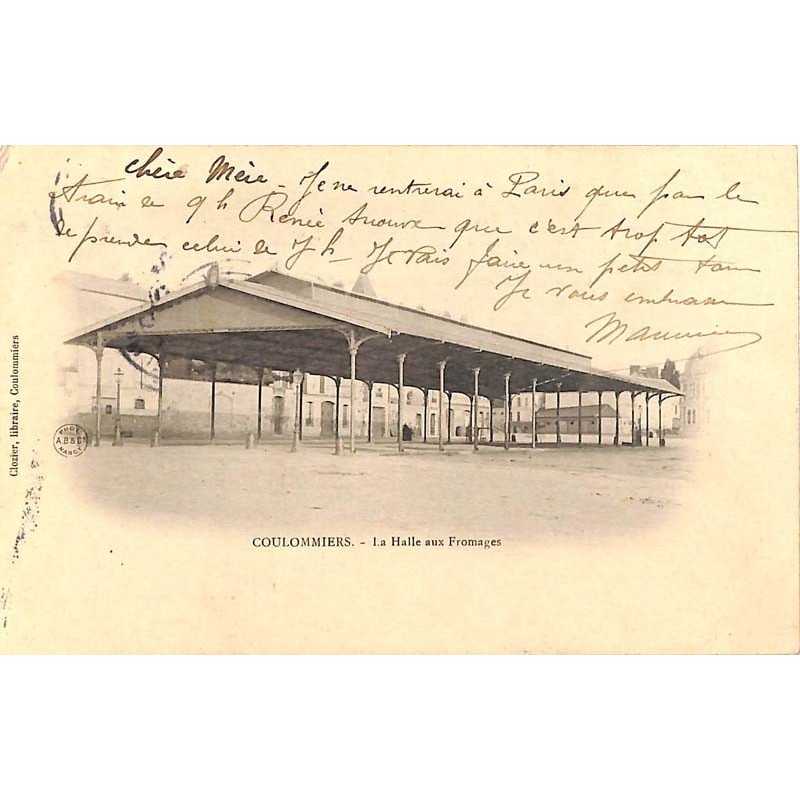 chère Mère - Je ne rentrerai à Paris que par le
train de 9 h Renée trouve que c'est trop tot
de prendre celui de 7 h - Je vais faire un petit tour
Je vous embrasse
Maurice
Clozier, libraire, Coulommiers
PHOT
A.B & C
NANCY
COULOMMIERS. - La Halle aux Fromages